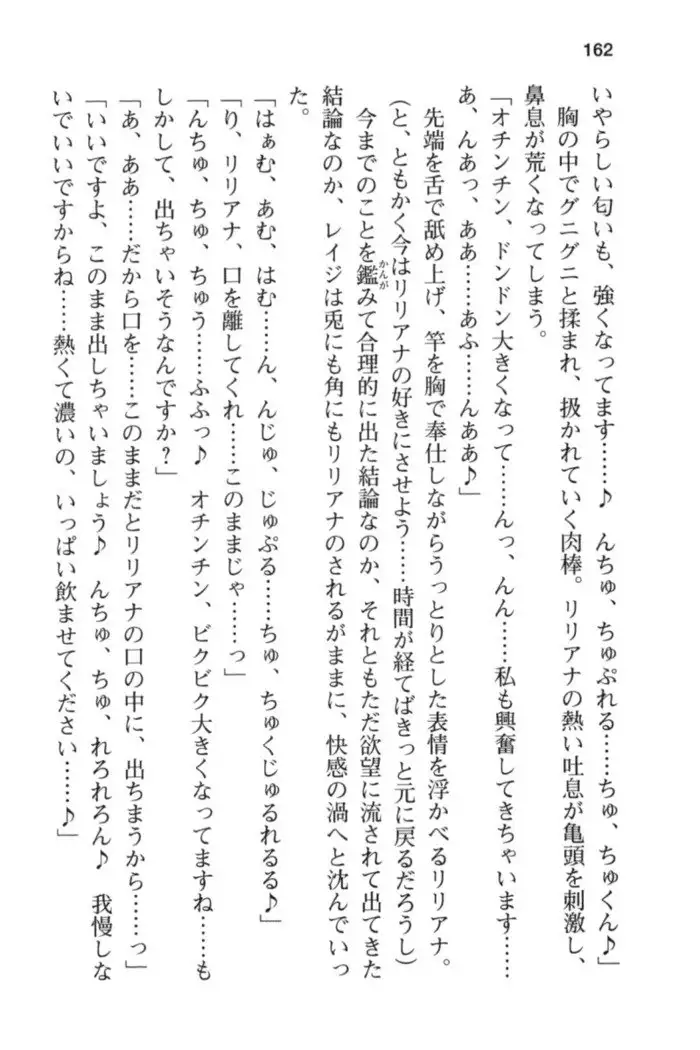 162
いやらしい匂いも、強くなってます……♪　んちゅ、ちゅぷれる……ちゅ、ちゅくん♪」
胸の中でグニグニと揉まれ、扱かれていく肉棒。リリアナの熱い吐息が亀頭を刺激し、
鼻息が荒くなってしまう。
「オチンチン、ドンドン大きくなって……んっ、んん……私も興奮してきちゃいます……
あ、んあっ、ああ……あふ……んああ♪」
先端を舌で舐め上げ、竿を胸で奉仕しながらうっとりとした表情を浮かべるリリアナ。
(と、ともかく今はリリアナの好きにさせよう……時間が経てばきっと元に戻るだろうし)
今までのことを鑑みて合理的に出た結論なのか、それともただ欲望に流されて出てきた
結論なのか、レイジは兎にも角にもリリアナのされるがままに、快感の渦へと沈んでいっ
た。
「はぁむ、あむ、はむ……ん、んじゅ、じゅぷる……ちゅ、ちゅくじゅるれるる♪」
「り、リリアナ、口を離してくれ……このままじゃ……っ」
「んちゅ、ちゅ、ちゅう……ふふっ♪　オチンチン、ビクビク大きくなってますね……も
しかして、出ちゃいそうなんですか？」
「あ、ああ……だから口を……このままだとリリアナの口の中に、出ちまうから……っ」
「いいですよ、このまま出しちゃいましょう♪　んちゅ、ちゅ、れろれろん♪　我慢しな
いでいいですからね……熱くて濃いの、いっぱい飲ませてください……♪」